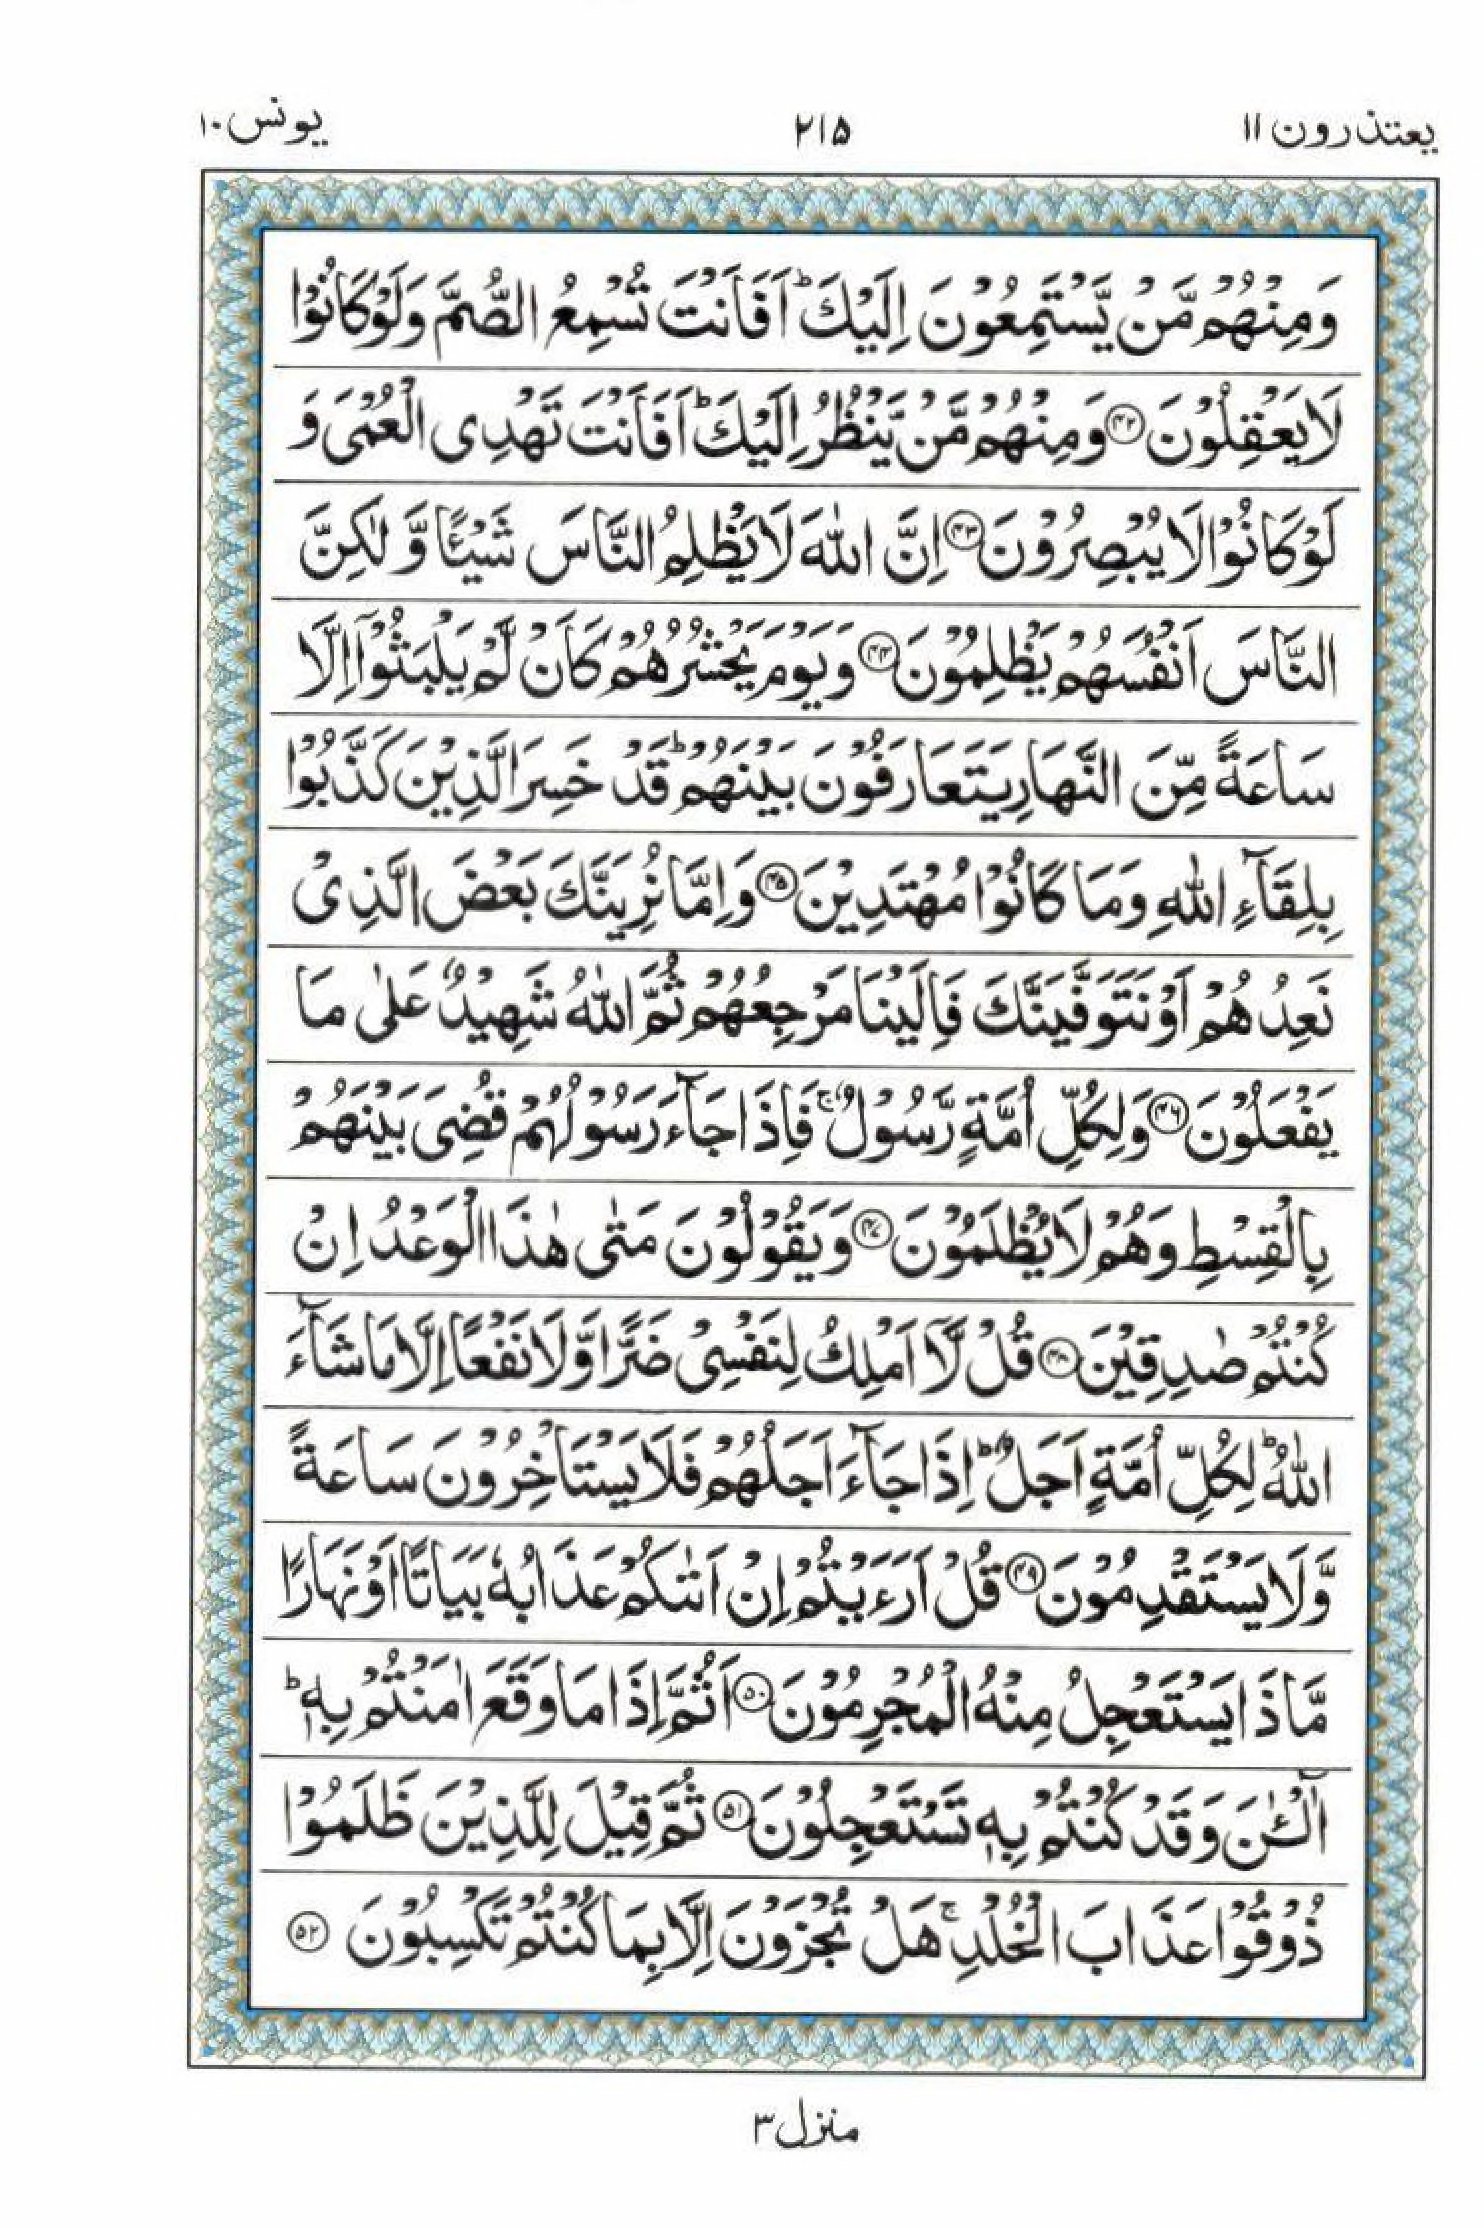 یعتذرون ۱۱
۲۱۵
یونس ۱۰
وَمِنْهُمْ مَّنْ يَّسْتَمِعُوْنَ اِلَيْكَ ؕ اَفَاَنْتَ تُسْمِعُ الصُّمَّ وَلَوْ كَانُوْا
لَا يَعْقِلُوْنَ ﴿۴۲﴾ وَمِنْهُمْ مَّنْ يَّنْظُرُ اِلَيْكَ ؕ اَفَاَنْتَ تَهْدِى الْعُمْىَ وَ
لَوْ كَانُوْا لَا يُبْصِرُوْنَ ﴿۴۳﴾ اِنَّ اللّٰهَ لَا يَظْلِمُ النَّاسَ شَيْـًٔا وَّ لٰكِنَّ
النَّاسَ اَنْفُسَهُمْ يَظْلِمُوْنَ ﴿۴۴﴾ وَيَوْمَ يَحْشُرُهُمْ كَاَنْ لَّمْ يَلْبَثُوْۤا اِلَّا
سَاعَةً مِّنَ النَّهَارِ يَتَعَارَفُوْنَ بَيْنَهُمْ ؕ قَدْ خَسِرَ الَّذِيْنَ كَذَّبُوْا
بِلِقَآءِ اللّٰهِ وَمَا كَانُوْا مُهْتَدِيْنَ ﴿۴۵﴾ وَاِمَّا نُرِيَنَّكَ بَعْضَ الَّذِىْ
نَعِدُهُمْ اَوْ نَتَوَفَّيَنَّكَ فَاِلَيْنَا مَرْجِعُهُمْ ثُمَّ اللّٰهُ شَهِيْدٌ عَلٰى مَا
يَفْعَلُوْنَ ﴿۴۶﴾ وَلِكُلِّ اُمَّةٍ رَّسُوْلٌ ۚ فَاِذَا جَآءَ رَسُوْلُهُمْ قُضِىَ بَيْنَهُمْ
بِالْقِسْطِ وَهُمْ لَا يُظْلَمُوْنَ ﴿۴۷﴾ وَيَقُوْلُوْنَ مَتٰى هٰذَا الْوَعْدُ اِنْ
كُنْتُمْ صٰدِقِيْنَ ﴿۴۸﴾ قُلْ لَّاۤ اَمْلِكُ لِنَفْسِىْ ضَرًّا وَّلَا نَفْعًا اِلَّا مَا شَآءَ
اللّٰهُ ؕ لِكُلِّ اُمَّةٍ اَجَلٌ ؕ اِذَا جَآءَ اَجَلُهُمْ فَلَا يَسْتَاْخِرُوْنَ سَاعَةً
وَّلَا يَسْتَقْدِمُوْنَ ﴿۴۹﴾ قُلْ اَرَءَيْتُمْ اِنْ اَتٰىكُمْ عَذَابُهٗ بَيَاتًا اَوْ نَهَارًا
مَّاذَا يَسْتَعْجِلُ مِنْهُ الْمُجْرِمُوْنَ ﴿۵۰﴾ اَثُمَّ اِذَا مَا وَقَعَ اٰمَنْتُمْ بِهٖ ؕ
آٰلْـٰٔنَ وَقَدْ كُنْتُمْ بِهٖ تَسْتَعْجِلُوْنَ ﴿۵۱﴾ ثُمَّ قِيْلَ لِلَّذِيْنَ ظَلَمُوْا
ذُوْقُوْا عَذَابَ الْخُلْدِ ۚ هَلْ تُجْزَوْنَ اِلَّا بِمَا كُنْتُمْ تَكْسِبُوْنَ ﴿۵۲﴾
منزل ۳